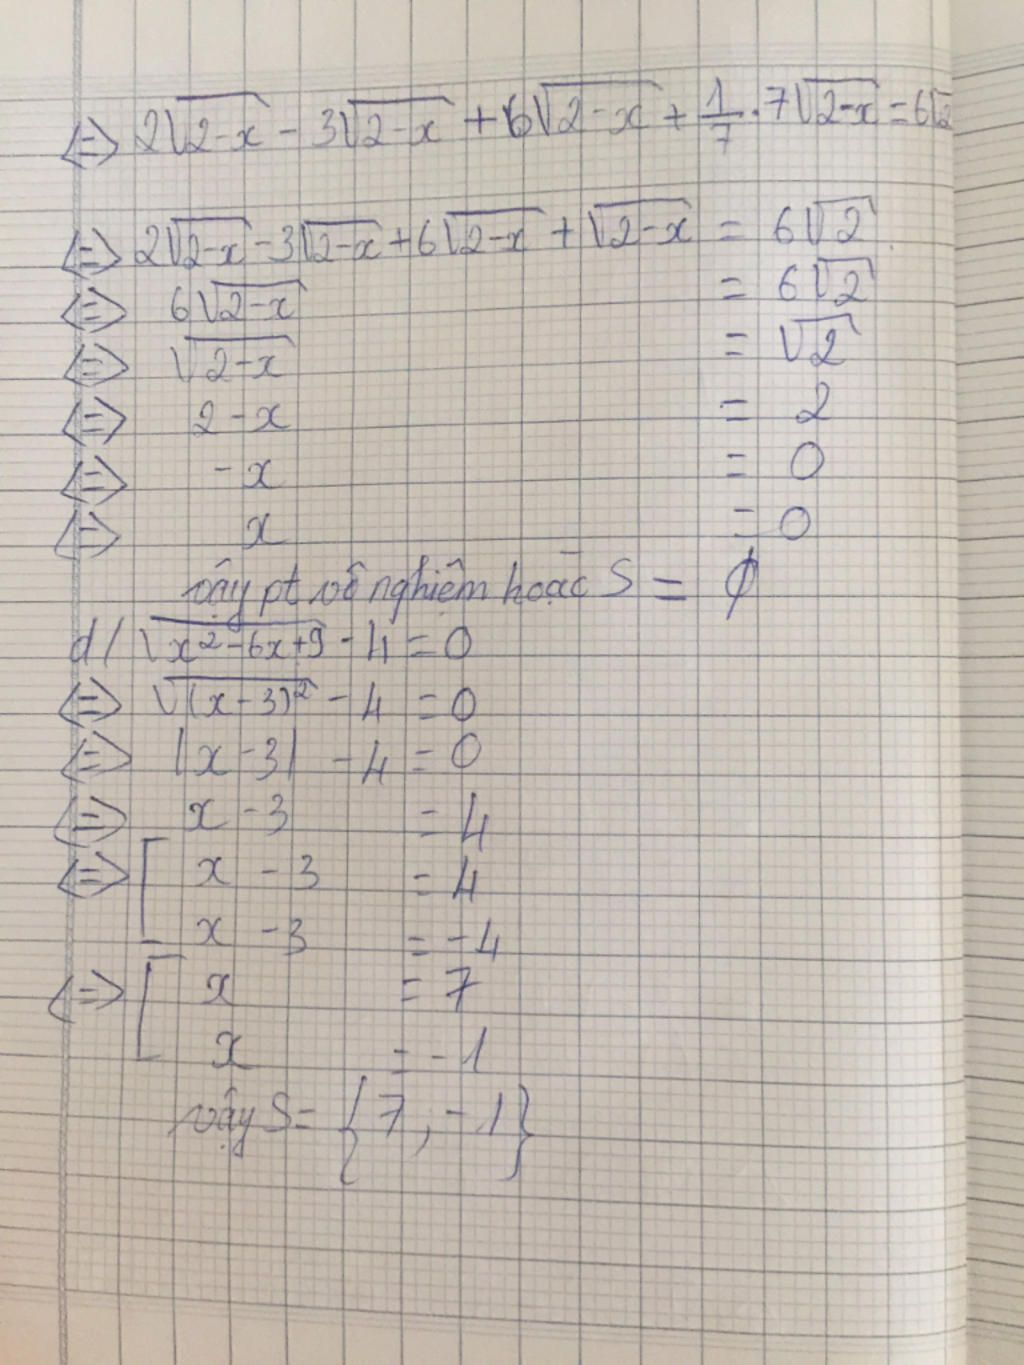 <=> 2√(2-x) - 3√(2-x) + 6√(2-x) + 1/7 . 7√(2-x) = 6√2
<=> 2√(2-x) - 3√(2-x) + 6√(2-x) + √(2-x) = 6√2
<=> 6√(2-x) = 6√2
<=> √(2-x) = √2
<=> 2-x = 2
<=> -x = 0
<=> x = 0
vậy pt vô nghiệm hoặc S = ∅
d/ √(x²-6x+9) - 4 = 0
<=> √((x-3)²) - 4 = 0
<=> |x-3| - 4 = 0
<=> x - 3 = 4
<=> [ x - 3 = 4
x - 3 = -4
<=> [ x = 7
x = -1
vậy S = {7, -1}